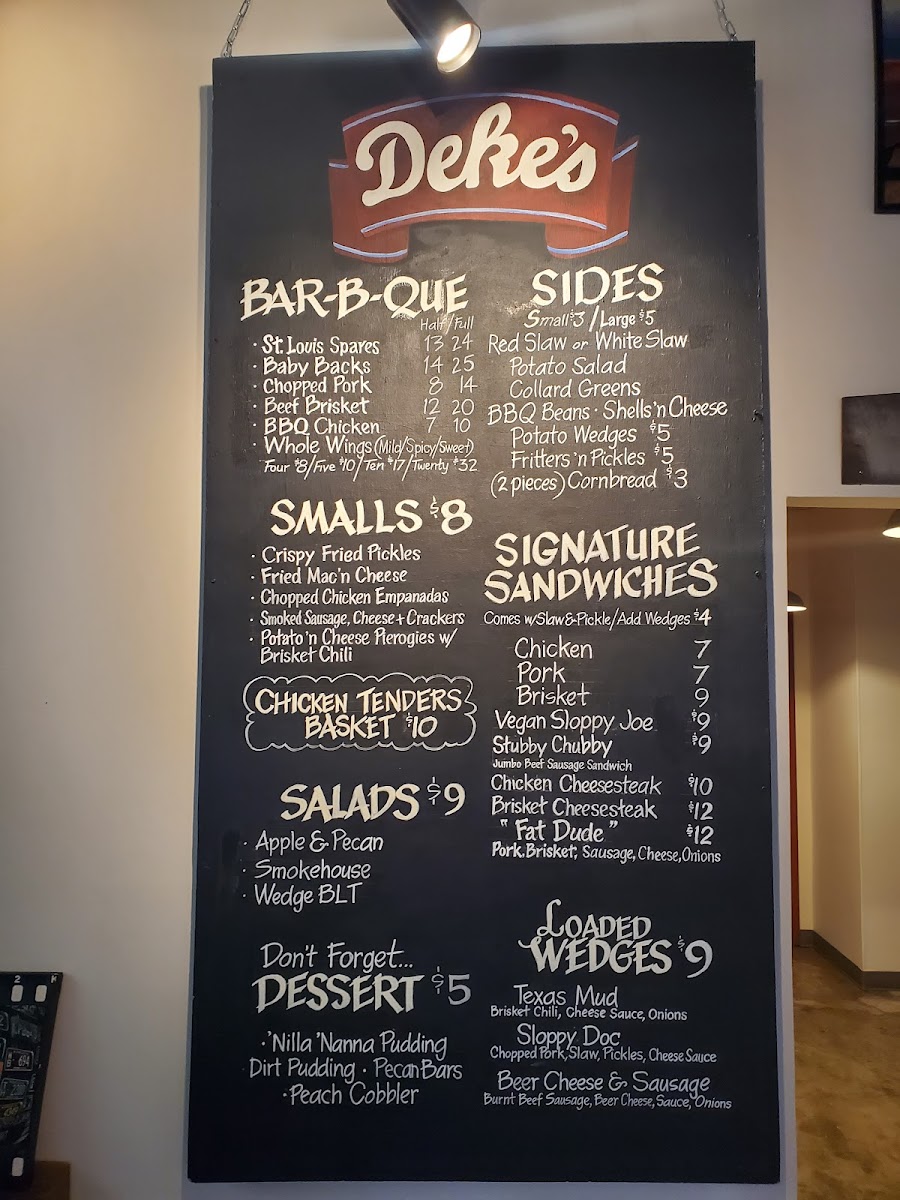 Deke's
BAR-B-QUE
Half/Full
· St. Louis Spares 13 24
· Baby Backs 14 25
· Chopped Pork 8 14
· Beef Brisket 12 20
· BBQ Chicken 7 10
· Whole Wings (Mild/Spicy/Sweet)
Four $8/Five $10/Ten $17/Twenty $32
SMALLS $8
· Crispy Fried Pickles
· Fried Mac'n Cheese
· Chopped Chicken Empanadas
· Smoked Sausage, Cheese + Crackers
· Potato 'n Cheese Pierogies w/
Brisket Chili
CHICKEN TENDERS
BASKET $10
SALADS $9
· Apple & Pecan
· Smokehouse
· Wedge BLT
Don't Forget...
DESSERT $5
· 'Nilla 'Nanna Pudding
Dirt Pudding · Pecan Bars
· Peach Cobbler
SIDES
Small $3 / Large $5
Red Slaw or White Slaw
Potato Salad
Collard Greens
BBQ Beans · Shells 'n Cheese
Potato Wedges $5
Fritters 'n Pickles $5
(2 pieces) Cornbread $3
SIGNATURE
SANDWICHES
Comes w/Slaw & Pickle/Add Wedges $4
Chicken 7
Pork 7
Brisket 9
Vegan Sloppy Joe $9
Stubby Chubby $9
Jumbo Beef Sausage Sandwich
Chicken Cheesesteak $10
Brisket Cheesesteak $12
"Fat Dude" $12
Pork, Brisket, Sausage, Cheese, Onions
LOADED
WEDGES $9
Texas Mud
Brisket Chili, Cheese Sauce, Onions
Sloppy Doc
Chopped Pork, Slaw, Pickles, Cheese Sauce
Beer Cheese & Sausage
Burnt Beef Sausage, Beer Cheese, Sauce, Onions